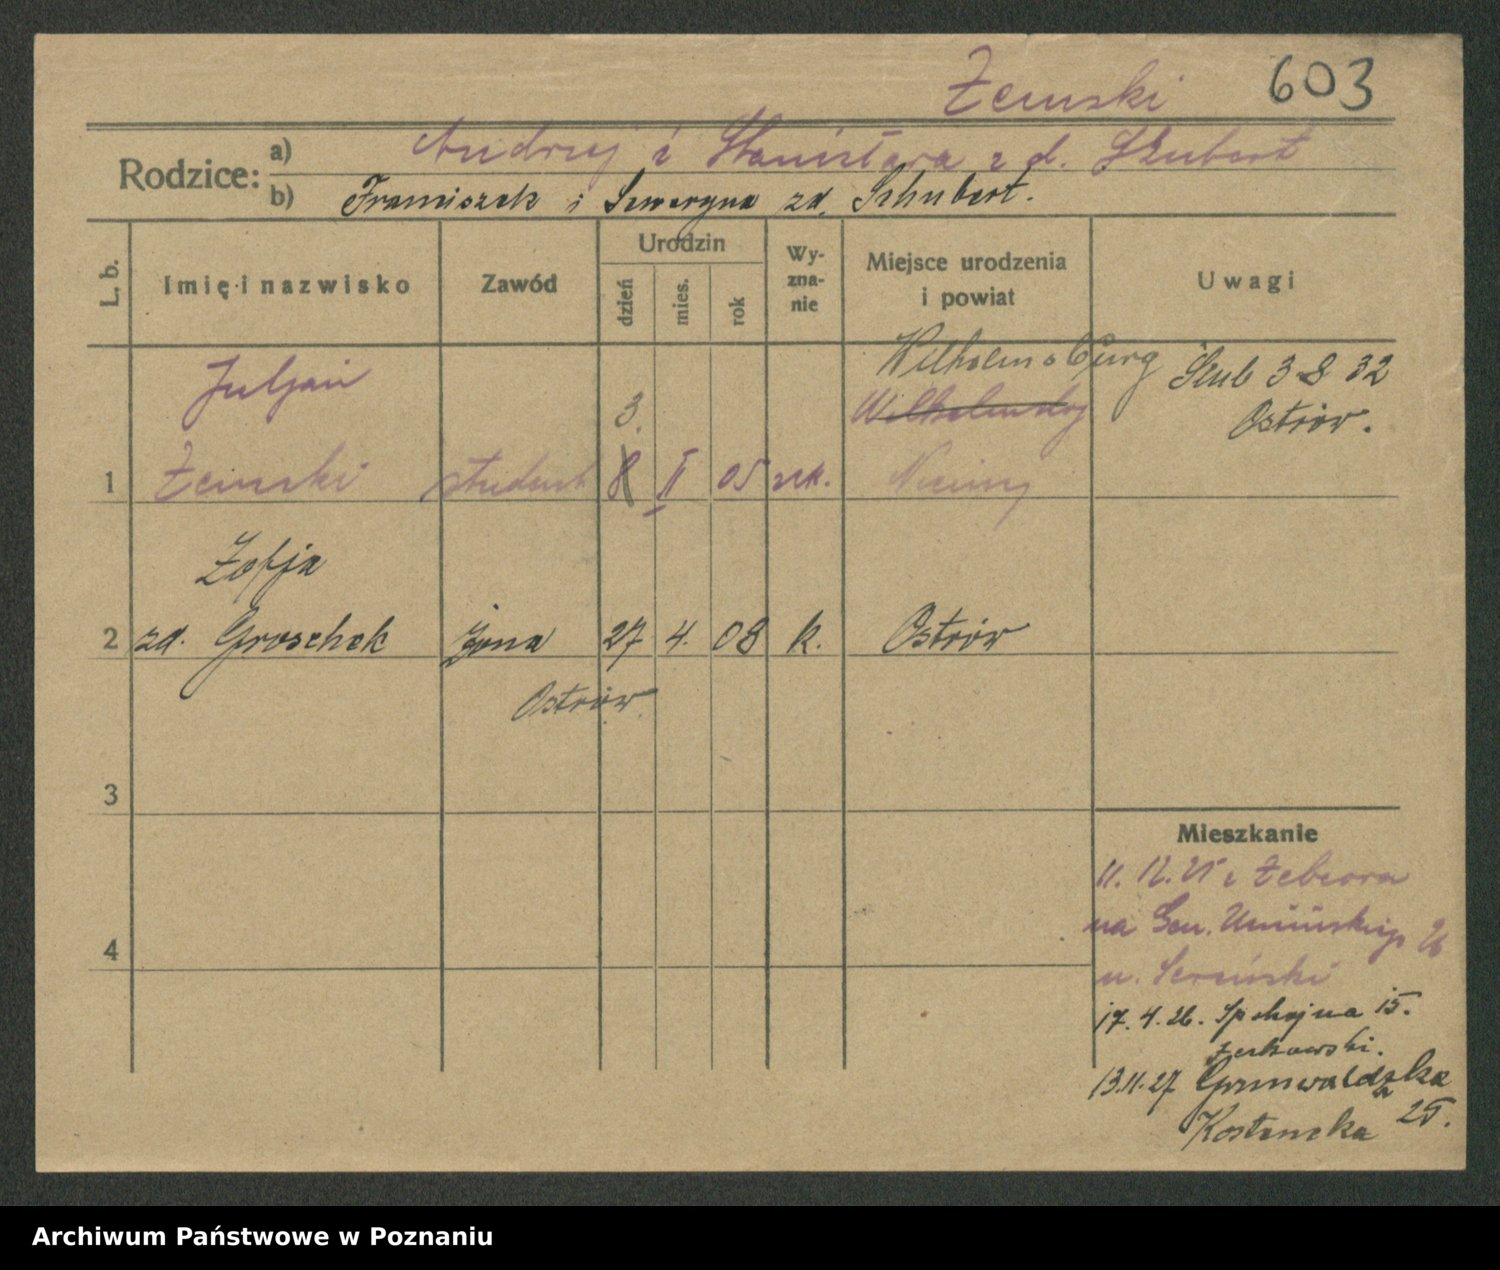 Żemski 603
Rodzice: a) Andrzej i Stanisława z d. Szubert
b) Franciszek i Seweryna zd. Schubert.
L. b. Imię i nazwisko Zawód Urodzin dzień mies. rok Wyznanie Miejsce urodzenia i powiat Uwagi
Juljan Wilhelmsburg Ślub 3 8 32
3. Ostrów.
1 Żemski student 8 II 05 rzk. Niemcy
Zofja
2 zd. Groschek żona 27 4. 08 k. Ostrów
Ostrów
3
4
Mieszkanie
11. 12. 25 z
na Gen. Umińskiego 26
u.
17. 4. 26. Spokojna 15.
Żerkowski.
13.11.27 Grunwaldzka
Kostencka 25.
Archiwum Państwowe w Poznaniu